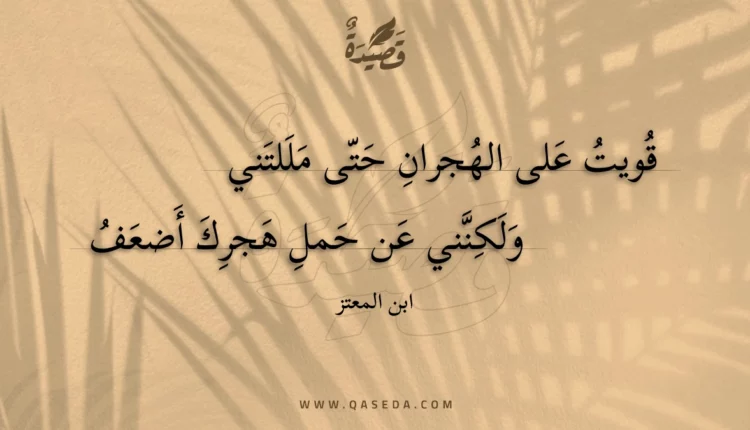 قَصِيدَةٌ
قُويتُ عَلى الهُجرانِ حَتّى مَلَلتَني
وَلَكِنَّني عَن حَملِ هَجرِكَ أَضعَفُ
ابن المعتز
WWW.QASEDA.COM